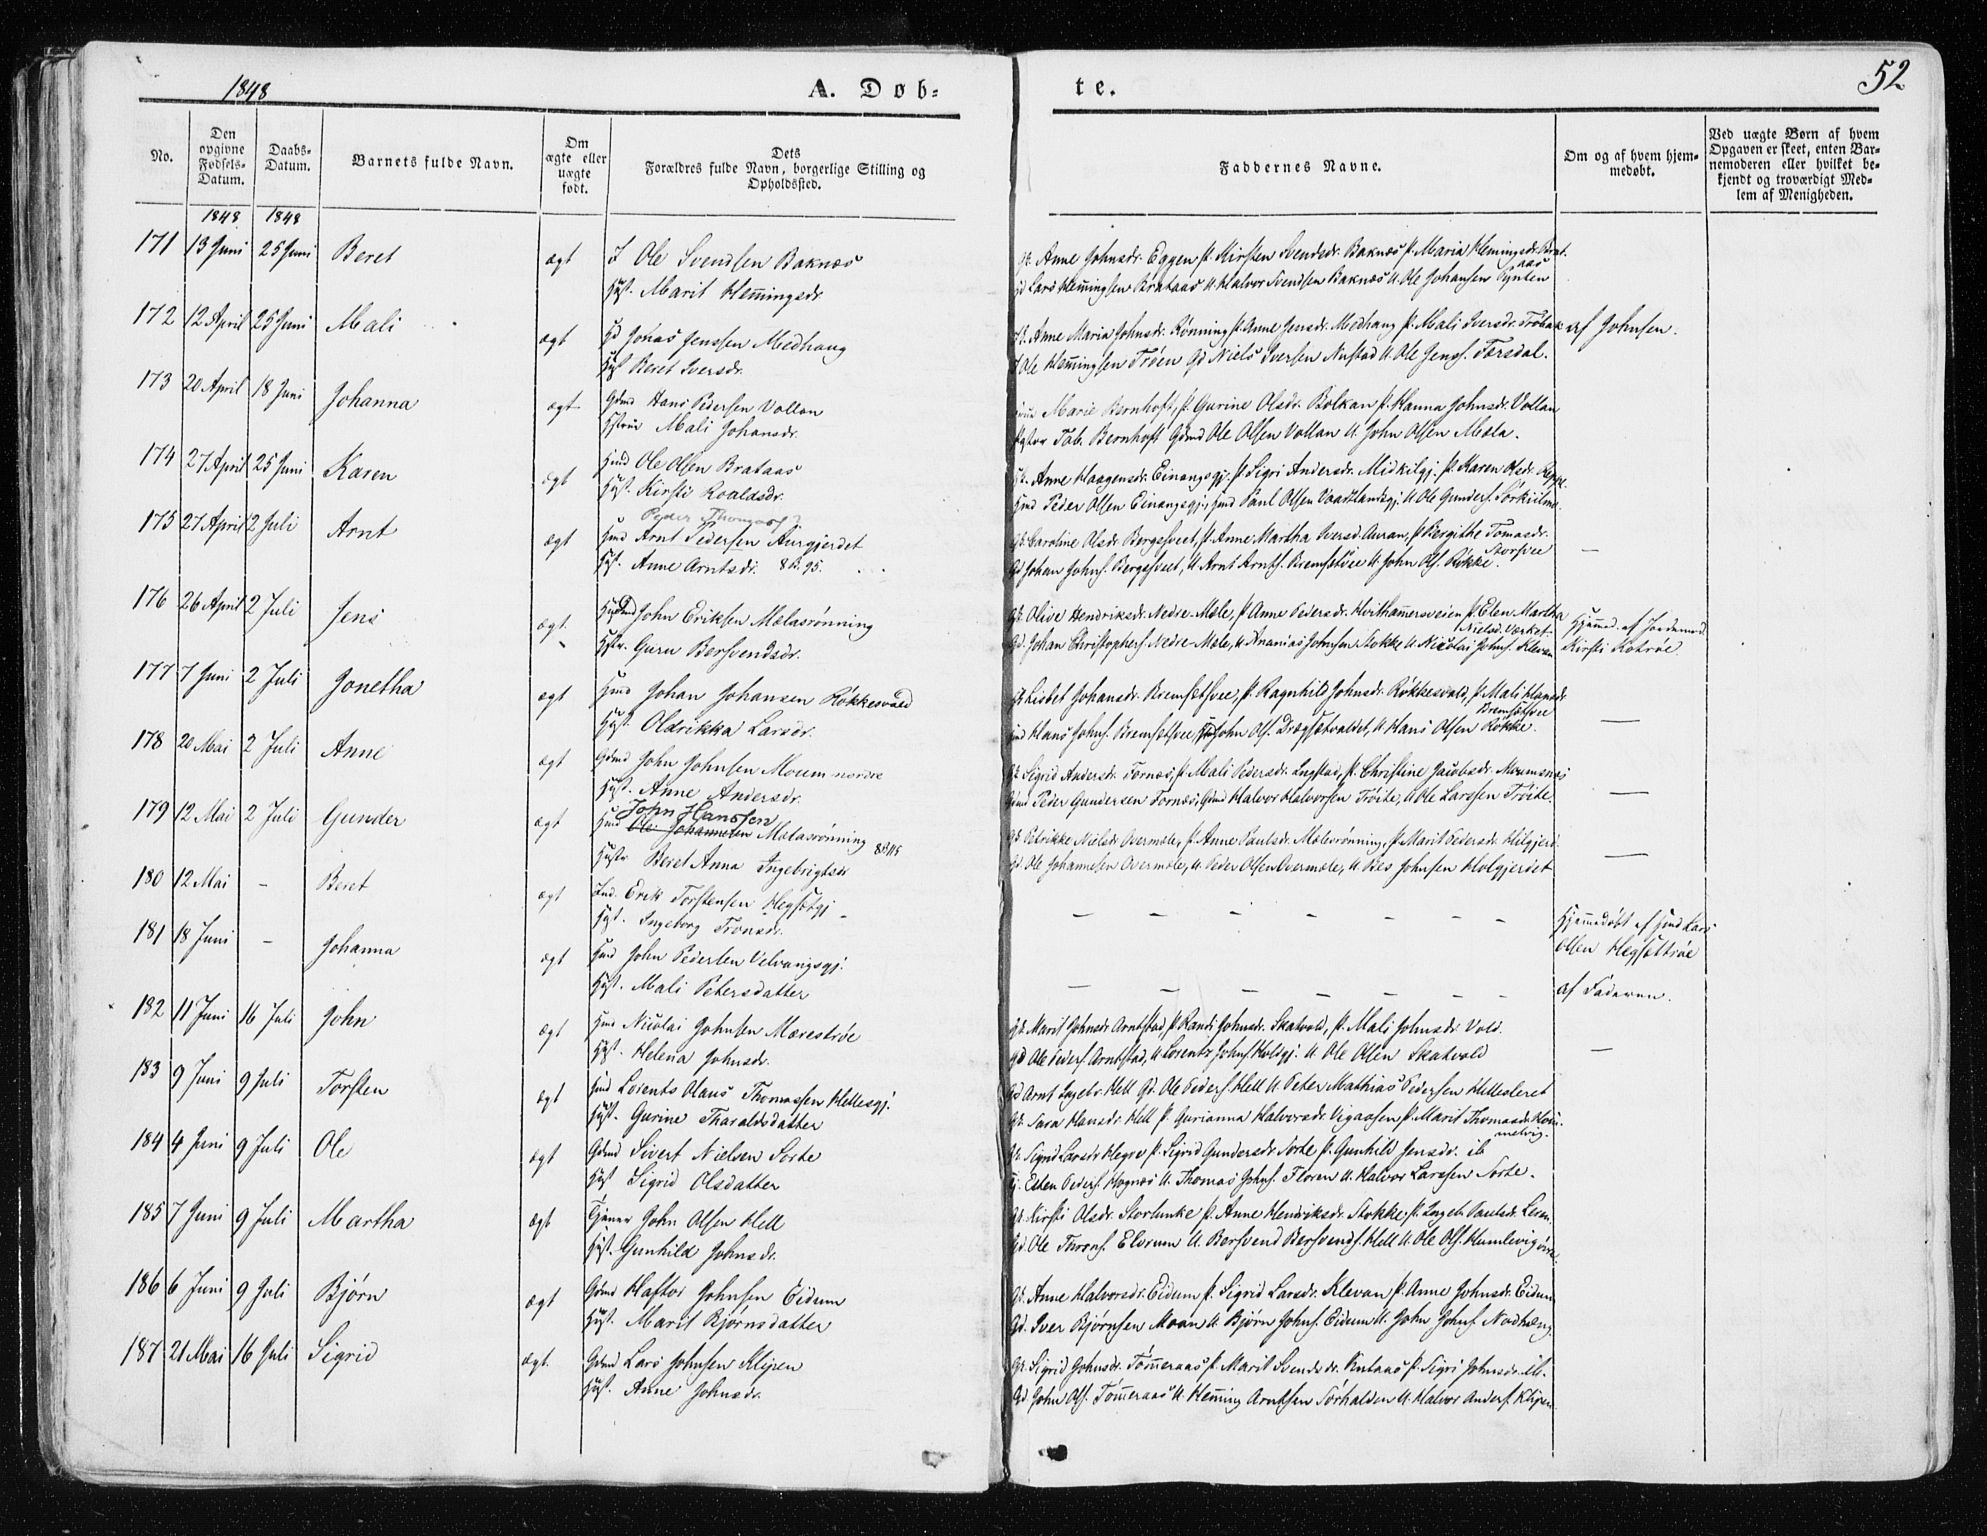 1848
A. Døb-
te.
52
No.
Den opgivne Fødsels-Datum.
Daabs-Datum.
Barnets fulde Navn.
Om ægte eller uægte født.
Dets Forældres fulde Navn, borgerlige Stilling og Opholdssted.
Faddernes Navne.
Om og af hvem hjem-medøbt.
Ved uægte Børn af hvem Opgaven er skeet, enten Bar-nemoderen eller hvilket be-kjendt og troværdigt Med-lem af Menigheden.
1848 1848
171 13 Juni 25 Juni Beret ægt I Ole Svendsen Baknæs
Hust. Marit Hemingsdr.
Anne Johnsdr. Eggen P. Kirsten Svendsdr. Baknæs P. Maria Hemingsdr. Brat-
aas
Lars Hemingsen Brataas U. Halvor Svendsen Baknæs U. Ole Johansen Tynlen
172 12 April 25 Juni Mali ægt Gd Jonas Jenssen Medhaug
Hust Beret Iversdr.
Anne Maria Johnsdr. Rønning P. Anne Jensdr. Medhaug P. Mali Iversdr. af Johnsen.
Ole Hemingsen Trøen Gd Niels Iversen U. Ole Jensf. Forsdal.
173 20 April 18 Juni Johanna ægt Gdmd Hans Pedersen Vollan
Hustrue Mali Johansdr.
Marie Bernhoft, P. Gurine Olsdr. Bolkan P. Hanna Johnsdr. Vollan
Tob. Bernhoft Gdmd Ole Olsen Vollan U. John Olsen Mæla.
174 27 April 25 Juni Karen ægt Hmd Ole Olsen Brataas
Hust. Kirsti Roaldsdr.
Anne Haagensdr. Einangsgj. P. Sigri Andersdr. Midkilgj. P. Karen Olsdr.
Hmd Peder Olsen Einangsgj., Hmd Paul Olsen U. Ole Gundersf.
175 27 April 2 Juli Arnt ægt Peder Thomass?
Hmd Arnt Pedersen Aurgjerdet
Hust. Anne Arntsdr. 8 B. 95.
Gk. Caroline Olsdr. Bergshveet, P. Anne Martha Iversd. Auran, P. Bergithe Tomasdr.
Storhvee
Gd Johan Johnsf. Bergshveet, U. Arnt Arntsf. Bremsethvee U. John Olsf. Røkke. —
176 26 April 2 Juli Jens ægt. John Eriksen Mælasrønning
Hustr. Guru Bersvendsdr.
Gk. Olive Hendriksdr. Nedre-Mæle, P. Anne Pedersdr. Hvithamersveien P. Elen Martha
Nielsd. Værket-
Gd. Johan Christophersf. Nedre-Mæle, U. Ananias Johnsen Stokke U. Nicolai Johnsf. Kleven
Hjemmed. af Jordemod.
Kirsti Kotrøe.
177 7 Juni 2 Juli Gonetha ægt Hmd Johan Johansen Røkkesvald
Hust. Oldrikka Larsdr.
Gk Lisbet Johansdr. Bremsethvee, P. Ragnhild Johnsdr. Røkkesvald, P. Mali Hansdr.
Bremsethvee
Hmd Hans Johnsf. Bremsethvee, John Olsf. Drægsetvaldet, U. Hans Olsen Røkke. —
178 20 Mai 2 Juli Anne ægt Gdmd John Johnsen Moum nordre
Hust. Anne Andersdr.
Gk. Sigrid Andersdr. Fornæs, P. Mali Pedersdr. Ingstad, P. Christine Jacobsdr. Moumsnæs
Gdmd Peder Gundersen Fornæs, Gdmd Halvor Halvorsen Trøite, U. Ole Larssen Trøite. —
179 12 Mai 2 Juli Gunder ægt John Hanssen
Hmd Ole Johannesen Mælasrønning 8B115
Hustr Beret Anna Ingebrigtsdr
Gk Petrikke Nielsdr. Overmæle, P. Anne Paulsdr. Mælesrønning, P. Marit Pedersdr. Hilgjerd.
Gd. Ole Johannesen Overmæle, U. Peder Olsen Overmæle, U. Johnsen Holgjerdet —
180 12 Mai - Beret ægt Ind. Erik Torstensen Hegsetgj
Hust. Ingeborg Tronsdr.
— — — — — — —
Hjemmedøbt af Hmd Lars
Olsen Hegsettrøe
181 18 Juni - Johanna ægt Hmd John Pedersen Velvangsgj.
Hust. Mali Petersdatter
— — — — — — —
af Faderen.
182 11 Juni 16 Juli John ægt Hmd Nicolai Johnsen Mærestrøe
Hust. Helena Johnsdr.
Gk. Marit Johnsdr. Arnstad, P. Randi Johnsdr. Skatvold, P. Mali Johnsdr. Vold.
Gd Ole Pedersf Arnstad, U. Lorents Johnsf. Holdgj. U. Ole Olsen Skatvold —
183 9 Juni 9 Juli Torsten ægt Hmd Lorents Olaus Thomassen Hellesgj.
Hust. Gurine Tharaldsdatter
Gd Arnt Ingebr. Hell Gd. Ole Pedersf. Hell U. Peter Mathias Pedersen Hellesleret
Gk. Sara Hansdr. Hell P. Gurianna Halvorsdr. Vigaasen P. Marit Thomasdr. Hom-
melvig.
184 4 Juni 9 Juli Ole ægt Gdmd Sivert Nielsen Sorte
Hust Sigrid Olsdatter
Sigrid Larsdr Hegre P. Sigrid Gundersdr. Sorte P. Gunhild Jensdr. ib
Pedersf. Hognæs U. Thomas Johnsf. Floren U. Halvor Larssen Sorte.
185 7 Juni 9 Juli Martha ægt Tjener John Olsen Hell
Hust. Gunhild Johnsdr.
Gk. Kirsti Olsdr. Storlunke P. Anne Hendriksdr. Stokke, P. Ingeb. Paulsdr. Leren
Gd. Ole Thronsf. Elvrum U. Bersvend Bersvendsf. Hell U. Ole Olsf. Humlevigøra
186 6 Juni 9 Juli Bjørn ægt Gdmd Haftor Johnsen Eidum
Hust. Marit Bjørnsdatter
Gk. Anne Halvorsdr. Eidum P. Sigrid Larsdr. Klevan P. Anne Johnsdr. Eidum
Gd. Iver Bjørnsen Moan U. Bjørn Johnsf. Eidum U. John Johnsf.
187 21 Mai 16 Juli Sigrid ægt. Gdmd Lars Johnsen Klepen
Hust. Anne Johnsdr.
Gk. Sigrid Johnsdr. Tømeraas P. Marit Svendsdr. P. Sigri Johnsdr. ib.
Gd John Olsf. Tømeraas U. Heming Arntsen Sørhalden U. Halvor Andersf. Klepen